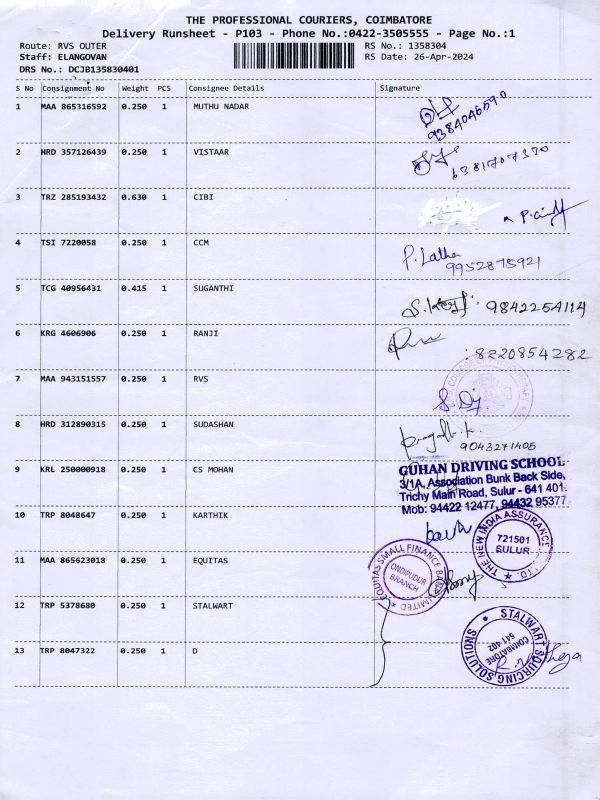 THE PROFESSIONAL COURIERS, COIMBATORE
Delivery Runsheet - P103 - Phone No.:0422-3505555 - Page No.:1
Route: RVS OUTER RS No.: 1358304
Staff: ELANGOVAN RS Date: 26-Apr-2024
DRS No.: DCJB135830401
S No Consignment No Weight PCS Consignee Details Signature
1 MAA 865316592 0.250 1 MUTHU NADAR
9384046590
2 HRD 357126439 0.250 1 VISTAAR
6381707330
3 TRZ 285193432 0.630 1 CIBI
4 TSI 7220058 0.250 1 CCM P. Latha
9952875921
5 TCG 40956431 0.415 1 SUGANTHI 9842254114
6 KRG 4606906 0.250 1 RANJI
8220854282
7 MAA 943151557 0.250 1 RVS
8 HRD 312890315 0.250 1 SUDASHAN
9043271405
9 KRL 250000918 0.250 1 CS MOHAN
GUHAN DRIVING SCHOOL
3/1A, Association Bunk Back Side,
Trichy Main Road, Sulur - 641 401.
Mob: 94422 12477, 94432 95377
10 TRP 8048647 0.250 1 KARTHIK
THE NEW INDIA ASSURANCE
721501
SULUR
11 MAA 865623018 0.250 1 EQUITAS
EQUITAS SMALL FINANCE BANK LIMITED
ONDIPUDUR
BRANCH
12 TRP 5378680 0.250 1 STALWART
STALWART SOURCING SOLUTIONS
COIMBATORE
641 402
13 TRP 8047322 0.250 1 D